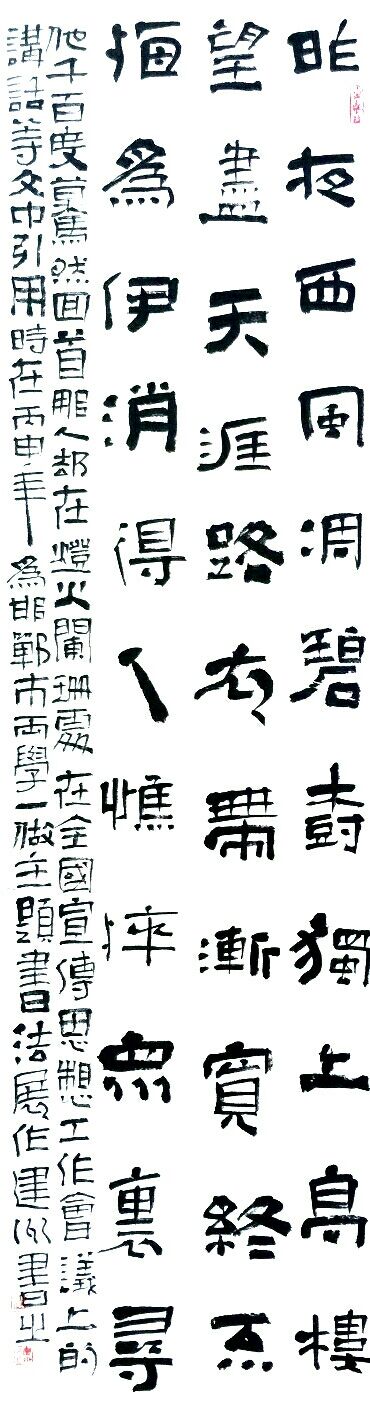 昨夜西風凋碧樹獨上高樓
望盡天涯路衣帶漸寬終不
悔為伊消得人憔悴眾裏尋
他千百度驀然回首那人却在燈火闌珊處在全國宣傳思想工作會議上的
講話等文中引用時在丙申年為邯鄲市两學一做主題書法展作建書之